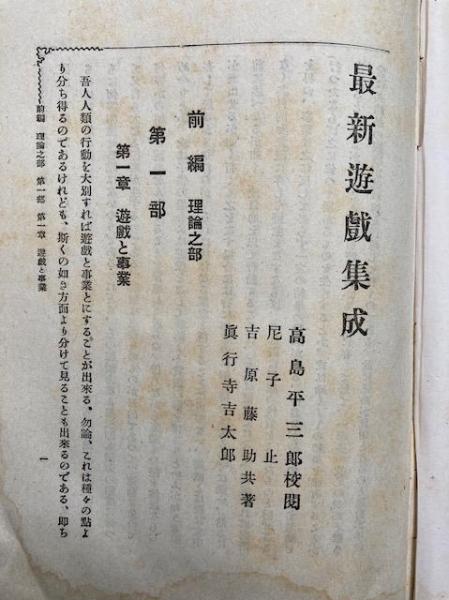 最新遊戲集成
高島平三郎校閱
尼子止
吉原藤助共著
眞行寺吉太郎
前編 理論之部
第一部
第一章 遊戲と事業
吾人人類の行動を大別すれば遊戲と事業とにすることが出來る、勿論、これは種々の點よ
り分ち得るのであるけれども、斯くの如き方面より分けて見ることも出來るのである、卽ち
前編 理論之部 第一部 第一章 遊戲と事業
一